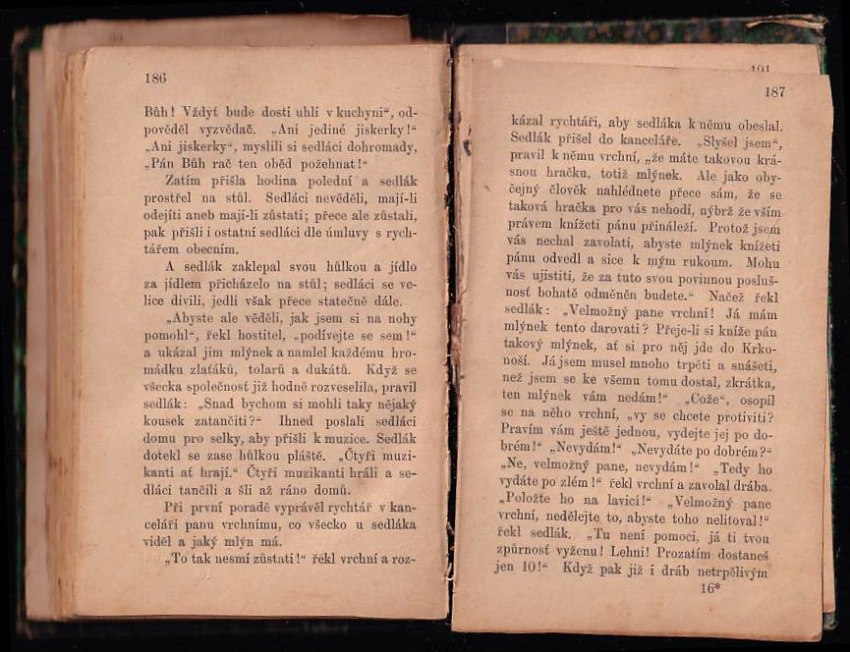 186
Bůh! Vždyť bude dosti uhlí v kuchyni“, od-
pověděl vyzvědač. „Ani jediné jiskerky!“
„Ani jiskerky“, myslili si sedláci dohromady,
„Pán Bůh rač ten oběd požehnat!“
Zatím přišla hodina polední a sedlák
prostřel na stůl. Sedláci nevěděli, mají-li
odejíti aneb mají-li zůstati; přece ale zůstali,
pak přišli i ostatní sedláci dle úmluvy s rych-
tářem obecním.
A sedlák zaklepal svou hůlkou a jídlo
za jídlem přicházelo na stůl; sedláci se ve-
lice divili, jedli však přece statečně dále.
„Abyste ale věděli, jak jsem si na nohy
pomohl“, řekl hostitel, „podívejte se sem!“
a ukázal jim mlýnek a namlel každému hro-
mádku zlaťáků, tolarů a dukátů. Když se
všecka společnosť již hodně rozveselila, pravil
sedlák: „Snad bychom si mohli taky nějaký
kousek zatančiti?“ Ihned poslali sedláci
domu pro selky, aby přišli k muzice. Sedlák
dotekl se zase hůlkou pláště. „Čtyři muzi-
kanti ať hrají.“ Čtyři muzikanti hráli a se-
dláci tančili a šli až ráno domů.
Při první poradě vyprávěl rychtář v kan-
celáři panu vrchnímu, co všecko u sedláka
viděl a jaký mlýn má.
„To tak nesmí zůstati!“ řekl vrchní a roz-
191
187
kázal rychtáři, aby sedláka k němu obeslal.
Sedlák přišel do kanceláře. „Slyšel jsem“,
pravil k němu vrchní, „že máte takovou krá-
snou hračku, totiž mlýnek. Ale jako oby-
čejný člověk nahlédnete přece sám, že se
taková hračka pro vás nehodí, nýbrž že vším
právem knížeti pánu přináleží. Protož jsem
vás nechal zavolati, abyste mlýnek knížeti
pánu odvedl a sice k mým rukoum. Mohu
vás ujistiti, že za tuto svou povinnou posluš-
nosť bohatě odměněn budete.“ Načež řekl
sedlák: „Velmožný pane vrchní! Já mám
mlýnek tento darovati? Přeje-li si kníže pán
takový mlýnek, ať si pro něj jde do Krko-
noší. Já jsem musel mnoho trpěti a snášeti,
než jsem se ke všemu tomu dostal, zkrátka,
ten mlýnek vám nedám!“ „Cože“, osopil
se na něho vrchní, „vy se chcete protiviti?
Pravím vám ještě jednou, vydejte jej po do-
brém!“ „Nevydám!“ „Nevydáte po dobrém?“
„Ne, velmožný pane, nevydám!“ „Tedy ho
vydáte po zlém!“ řekl vrchní a zavolal drába.
„Položte ho na lavici!“ „Velmožný pane
vrchní, nedělejte to, abyste toho nelitoval!“
řekl sedlák. „Tu není pomoci, já ti tvou
způrnosť vyženu! Lehni! Prozatím dostaneš
jen 10!“ Když pak již i dráb netrpělivým
16*